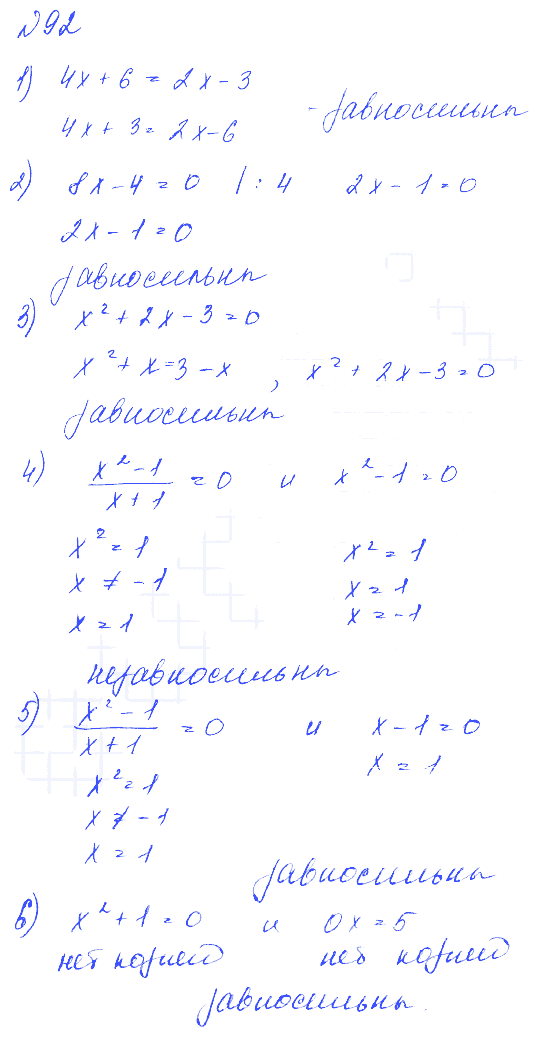 №92
1) 4x + 6 = 2x - 3
4x + 3 = 2x - 6 - равносильны
2) 8x - 4 = 0 | : 4 2x - 1 = 0
2x - 1 = 0
равносильны
3) x² + 2x - 3 = 0
x² + x = 3 - x , x² + 2x - 3 = 0
равносильны
4) (x² - 1)/(x + 1) = 0 и x² - 1 = 0
x² = 1 x² = 1
x ≠ -1 x = 1
x = 1 x = -1
неравносильны
5) (x² - 1)/(x + 1) = 0 и x - 1 = 0
x² = 1 x = 1
x ≠ -1
x = 1
равносильны
6) x² + 1 = 0 и 0x = 5
нет корней нет корней
равносильны.